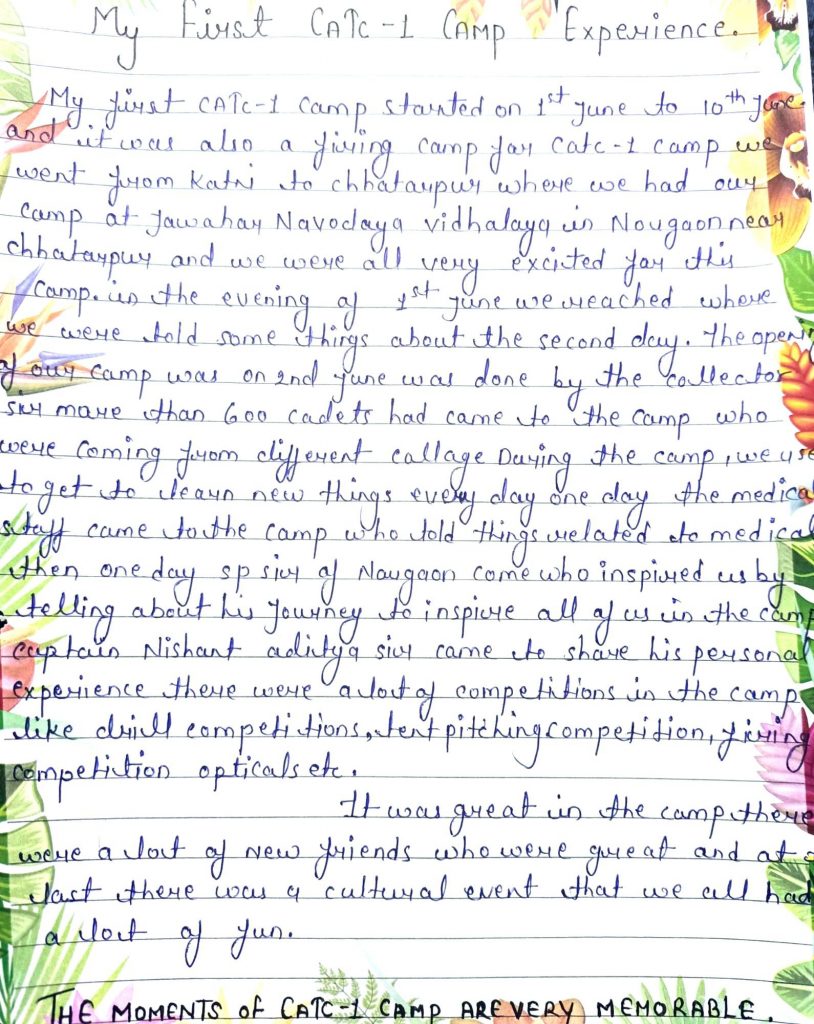 My First CATC-1 CAMP Experience.
My first CATC-1 camp started on 1st June to 10th June.
and it was also a firing camp for Catc-1 camp we
went from Katni to chhatarpur where we had our
camp at Jawahar Navodaya vidhalaya in Nougaon near
chhatarpur and we were all very excited for this
camp. in the evening of 1st June we reached where
we were told some things about the second day. The openin
of our camp was on 2nd June was done by the collector
sir more than 600 cadets had came to the camp who
were coming from different callage During the camp, we use
to get to learn new things every day one day the medical
staff came to the camp who told things related to medical
then one day sp sir of Naugaon come who inspired us by
telling about his Journey to inspire all of us in the camp
captain Nishant aditya sir came to share his personal
experience there were a lout of competitions in the camp
like drill competitions, tent pitching competition, firing
competiction opticals etc.
It was great in the camp. there
were a lout of New friends who were great and at
last there was a cultural event that we all had
a lout of fun.
THE MOMENTS OF CATC-1 CAMP ARE VERY MEMORABLE.